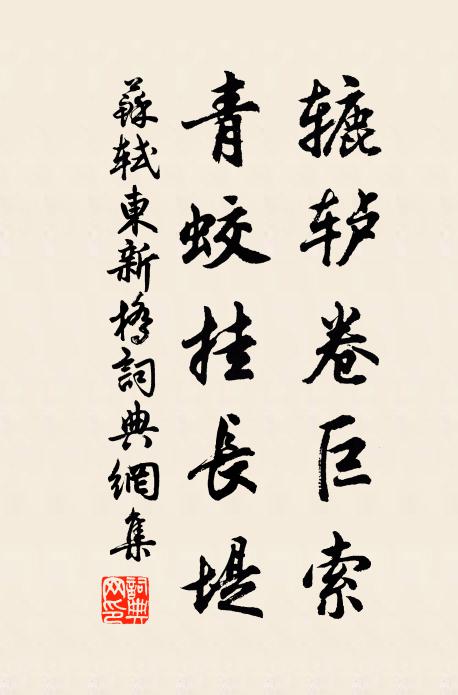 辘轳卷巨索
青蛟挂長堤
蘇軾東新橋詞典網集
詞典網印